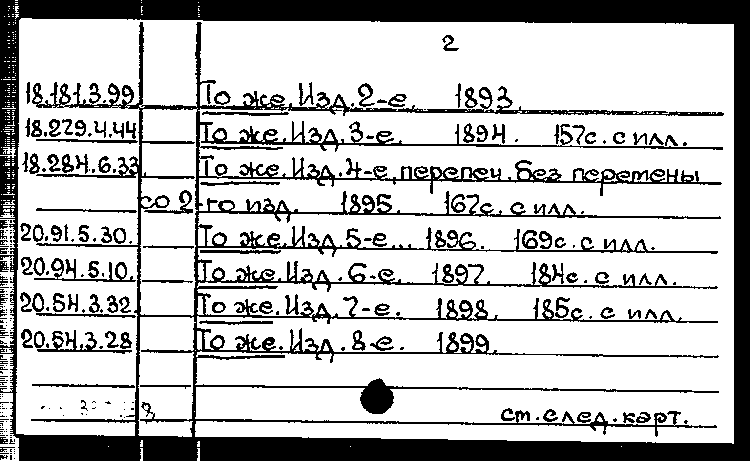 2
18.181.3.99 То же. Изд. 2-е. 1893.
18.279.4.44 То же. Изд. 3-е. 1894. 157с. с илл.
18.284.6.33. То же. Изд. 4-е, перепеч. без перемены
со 2-го изд. 1895. 167с. с илл.
20.91.5.30. То же. Изд. 5-е... 1896. 169с. с илл.
20.94.5.10. То же. Изд. 6-е. 1897. 184с. с илл.
20.54.3.32. То же. Изд. 7-е. 1898. 185с. с илл.
20.54.3.28 То же. Изд. 8-е. 1899.
см. след. карт.